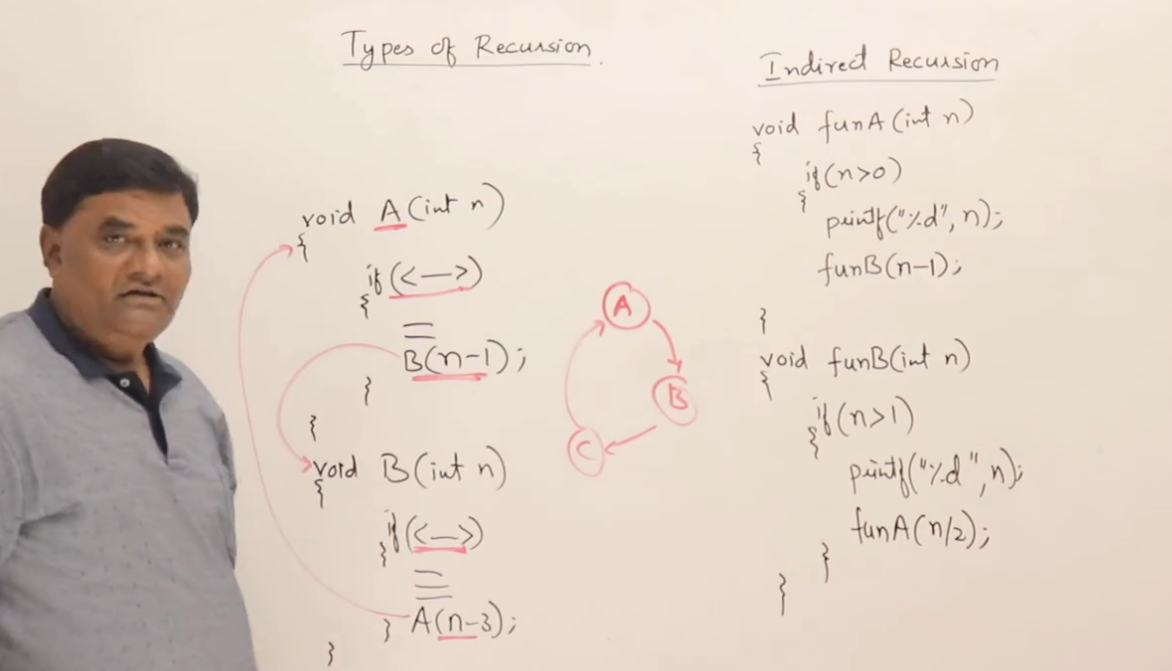 Types of Recursion.
void A(int n)
{
if(<—>)
{
B(n-1);
}
}
void B(int n)
{
if(<—>)
{
} A(n-3);
}
A
B
C
Indirect Recursion
void funA(int n)
{
if(n>0)
{
printf("%d", n);
funB(n-1);
}
void funB(int n)
{
if(n>1)
{
printf("%d", n);
funA(n/2);
}
}